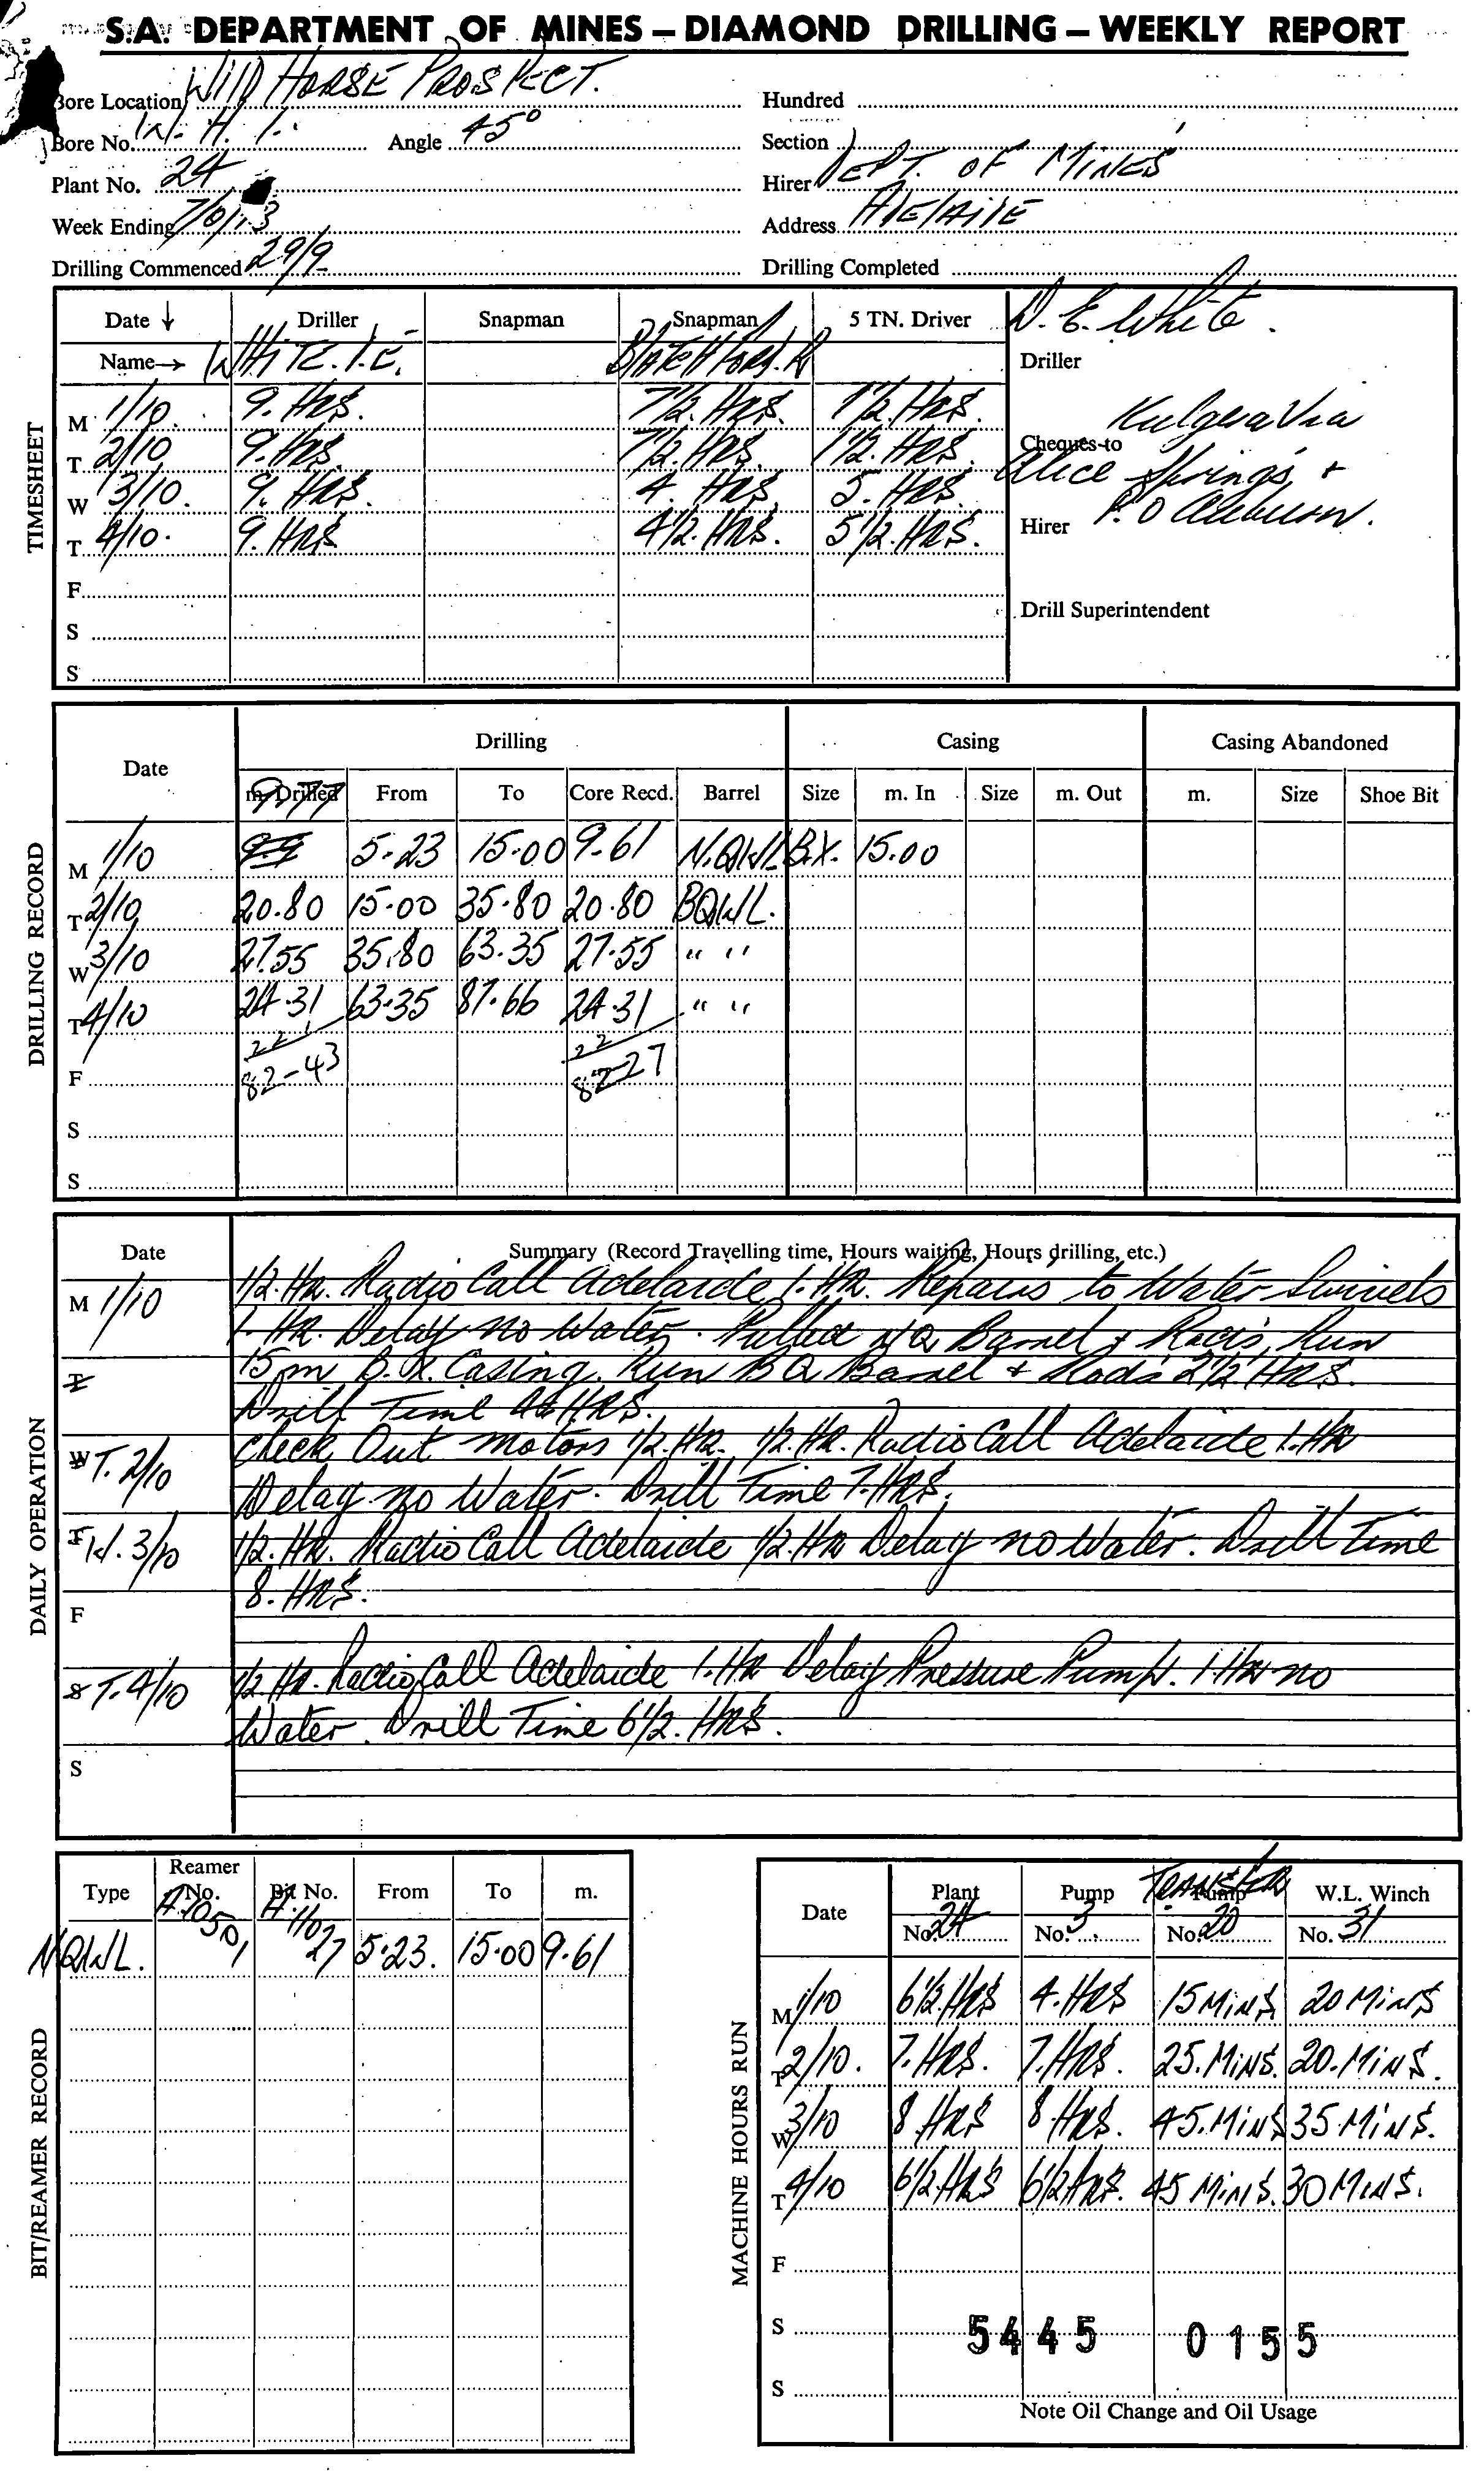 S.A. DEPARTMENT OF MINES – DIAMOND DRILLING – WEEKLY REPORT
Bore Location WILD HORSE PROSPECT.
Hundred
Bore No. W. H. 1. Angle 45°
Section
Plant No. 24
Hirer DEPT. OF MINES
Week Ending
Address
Drilling Commenced 29/9
Drilling Completed
TIMESHEET
Date ↓ Driller Snapman Snapman 5 TN. Driver D. E. White.
Name→ WHITE. D.E. BLATCHFORD. R Driller
M 1/10. 9. HRS. 7 1/2. HRS. 1 1/2. HRS. Kulgera Via
T 2/10 9. HRS. 7 1/2. HRS. 1 1/2. HRS. Cheques to
Alice Springs +
W 3/10. 9. HRS. 4. HRS. 5. HRS.
T 4/10. 9. HRS. 4 1/2. HRS. 5 1/2. HRS. Hirer P.O Auburn.
F
S Drill Superintendent
S
DRILLING RECORD
Date Drilling Casing Casing Abandoned
m. Drilled From To Core Recd. Barrel Size m. In Size m. Out m. Size Shoe Bit
9.77
M 1/10 9.9 5.23 15.00 9.61 N.QWL B.X. 15.00
T 2/10 20.80 15.00 35.80 20.80 BQWL.
W 3/10 27.55 35.80 63.35 27.55 " "
T 4/10 24.31 63.35 87.66 24.31 " "
22 22
F 82-43 82-27
S
S
DAILY OPERATION
Date Summary (Record Travelling time, Hours waiting, Hours drilling, etc.)
M 1/10 1/2. Hr. Radio Call Adelaide 1. HR. Repairs to Water Swivels
1. HR. Delay no Water. Pulled NQ Barrel + Rods, Run
T 15 m B.X. Casing. Run BQ Barrel + Rods 2 1/2. HRS.
Drill Time 4 HRS.
W T. 2/10 Check Out motors 1/2. HR. 1/2. HR. Radio Call Adelaide 1. HR
Delay no Water. Drill Time 7. HRS.
T W. 3/10 1/2. HR. Radio Call Adelaide 1/2. HR Delay no Water. Drill Time
8. HRS.
F
S T. 4/10 1/2 HR. Radio Call Adelaide 1. HR Delay Pressure Pump. 1 HR no
Water. Drill Time 6 1/2. HRS.
S
BIT/REAMER RECORD
Type Reamer No. Bit No. From To m.
A1050 1 A 1102 27
NQWL. 5.23. 15.00 9.61
MACHINE HOURS RUN
Date Plant Pump Pump TRANSFER W.L. Winch
No. 24 No. 3 No. 20 No. 31
M 1/10 6 1/2. HRS 4. HRS 15 MINS 20 MINS
T 2/10. 7. HRS. 7. HRS. 25. MINS. 20. MINS.
W 3/10 8 HRS 8 HRS. 45. MINS 35 MINS.
T 4/10 6 1/2. HRS 6 1/2 HRS. 45 MINS. 30 MINS.
F
S 5445 0155
S
Note Oil Change and Oil Usage